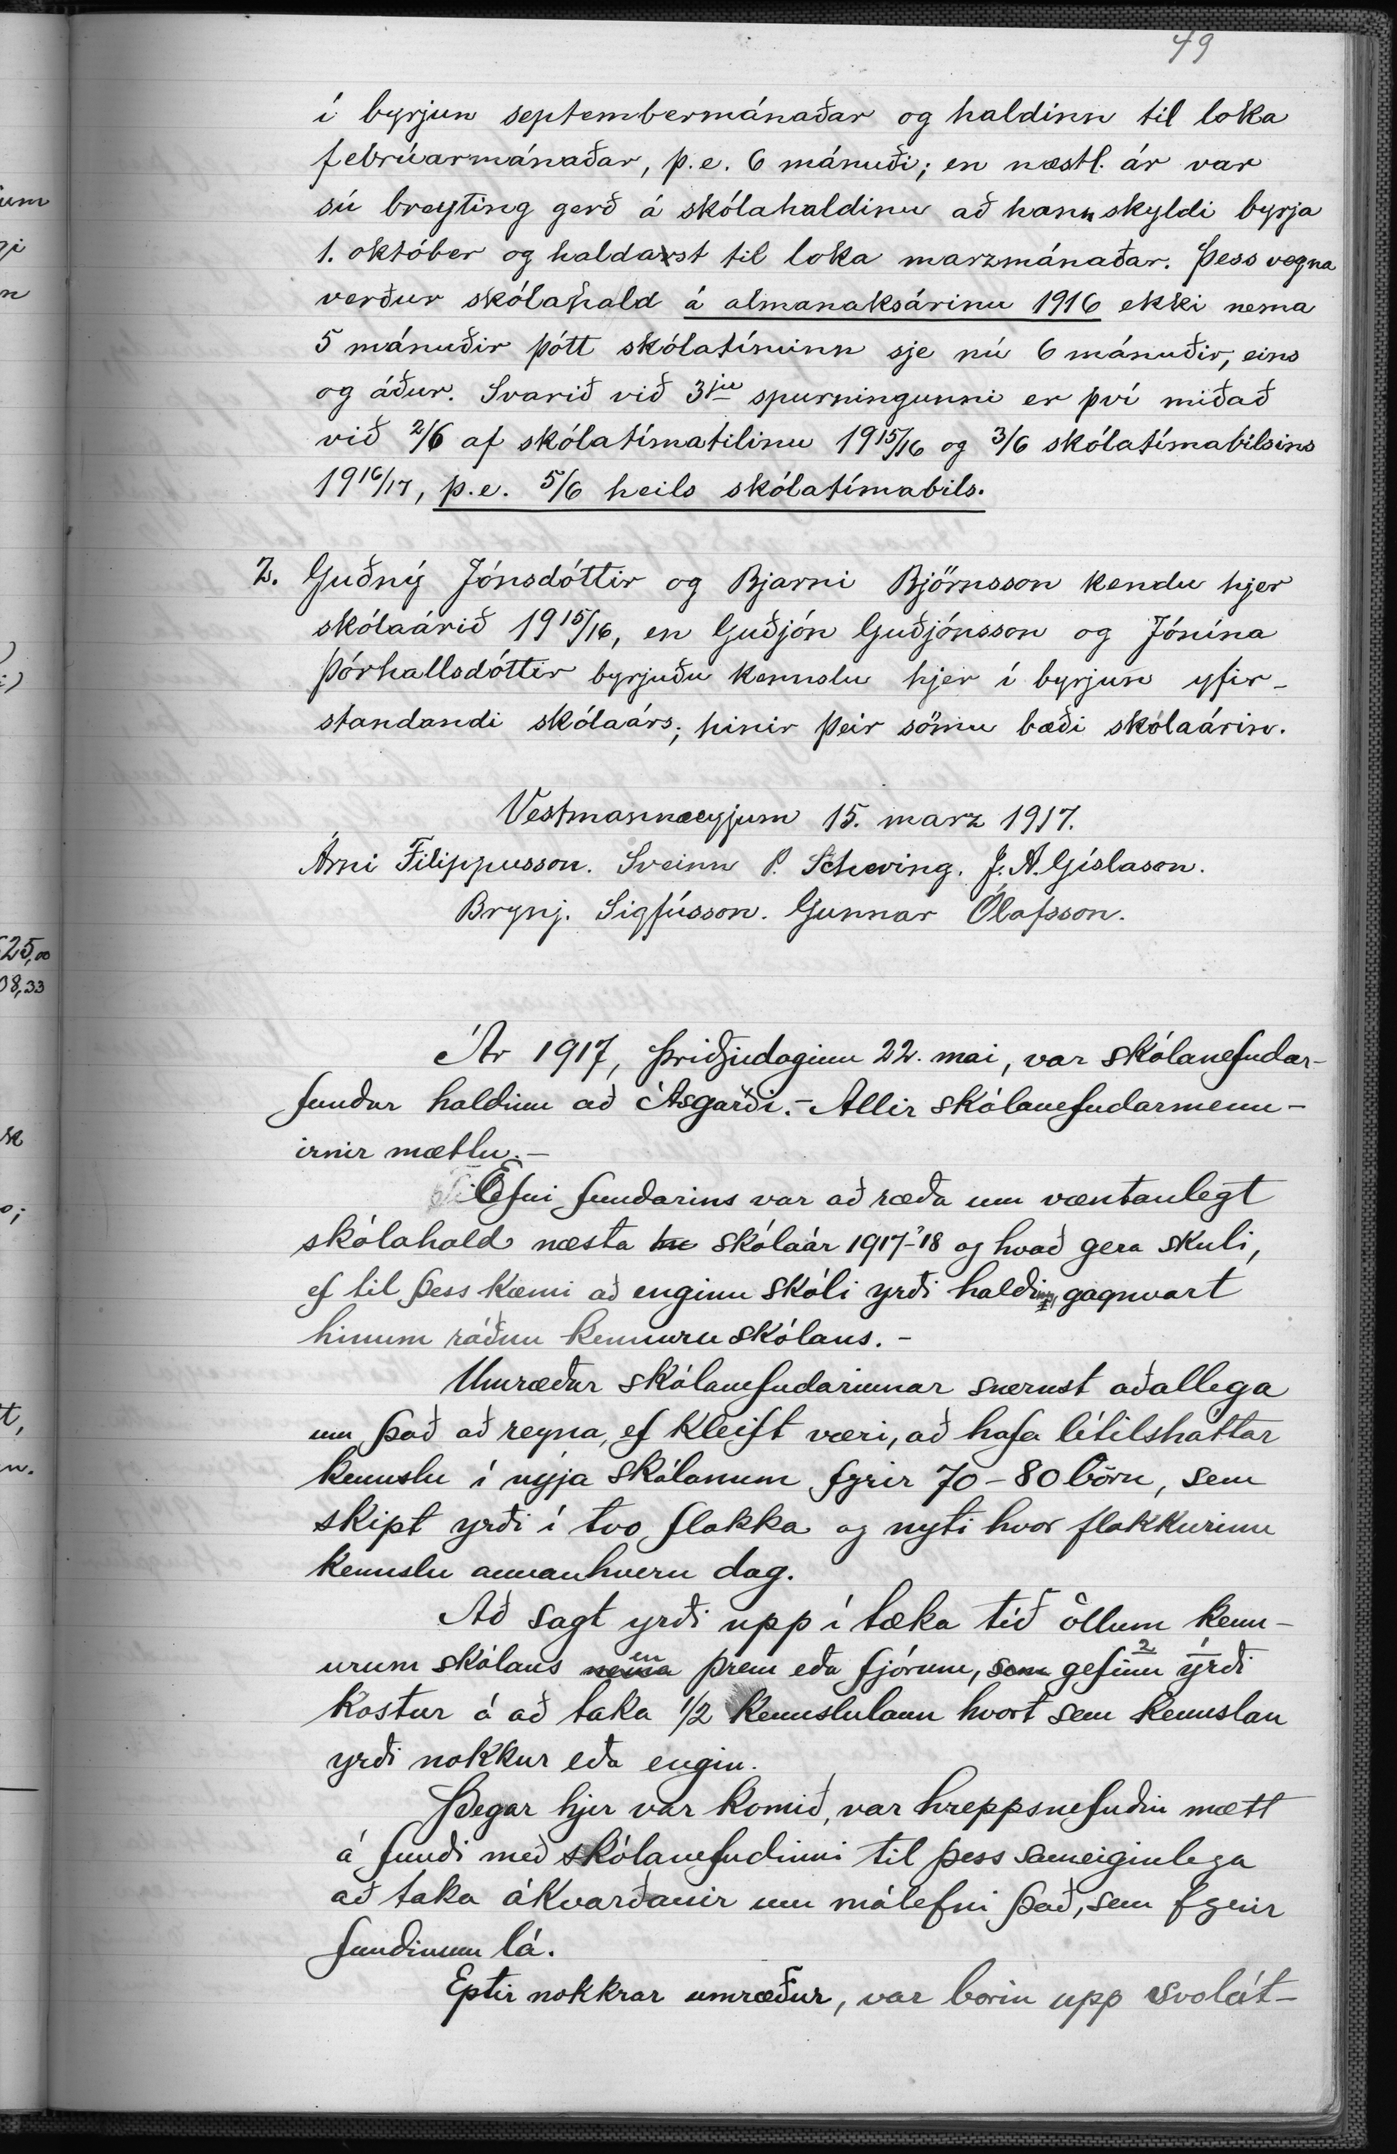 49
í byrjun septembermánaðar og haldinn til loka
febrúarmánaðar, þ.e. 6 mánuði; en næstl. ár var
sú breyting gerð á skólahaldinu að hann skyldi byrja
1. október og haldast til loka marzmánaðar. Þess vegna
verður skólahald á almanaksárinu 1916 ekki nema
5 mánuðir þótt skólatíminn sje nú 6 mánuðir, eins
og áður. Svarið við 3ju spurningunni er því miðað
við 2/6 af skólatímatilinu 1915/16 og 3/6 skólatímabilsins
1916/17, þ.e. 5/6 heils skólatímabils.
2. Guðný Jónsdóttir og Bjarni Björnsson kendu hjer
skólaárið 1915/16, en Guðjón Guðjónsson og Jónína
Þórhallsdóttir byrjuðu kennslu hjer í byrjun yfir-
standandi skólaárs; hinir þeir sömu bæði skólaárin.
Vestmannaeyjum 15. marz 1917.
Árni Filippusson. Sveinn P. Scheving. J. A. Gíslason.
Brynj. Sigfússon. Gunnar Ólafsson.
Ár 1917, þriðjudaginn 22. mai, var skólanefndar-
fundur haldinn að Ásgarði. - Allir skólanefndarmenn-
irnir mættu. -
Efni fundarins var að ræða um væntanlegt
skólahald næsta skólaár 1917-'18 og hvað gera skuli,
ef til þess kæmi að enginn skóli yrði haldinn gagnvart
hinum ráðnu kennurum skólans. -
Umræður skólanefndarinnar snerust aðallega
um það að reyna, ef kleift væri, að hafa lítilsháttar
kennslu í nýja skólanum fyrir 70-80 börn, sem
skipt yrði í tvo flokka og nyti hvor flokkurinn
kennslu annanhvern dag.
Að sagt yrði upp í tæka tíð öllum kenn-
urum skólans nema en þrem eða fjórum, som gefinn 2 yrði 1
kostur á að taka 1/2 kennslulaun hvort sem kennslan
yrði nokkur eða engin.
Þegar hjer var komið, var hreppsnefndin mætt
á fundi með skólanefndinni til þess sameiginlega
að taka ákvarðanir um málefni það, sem fyrir
fundinum lá.
Eptir nokkrar umræður, var borin upp svolát-